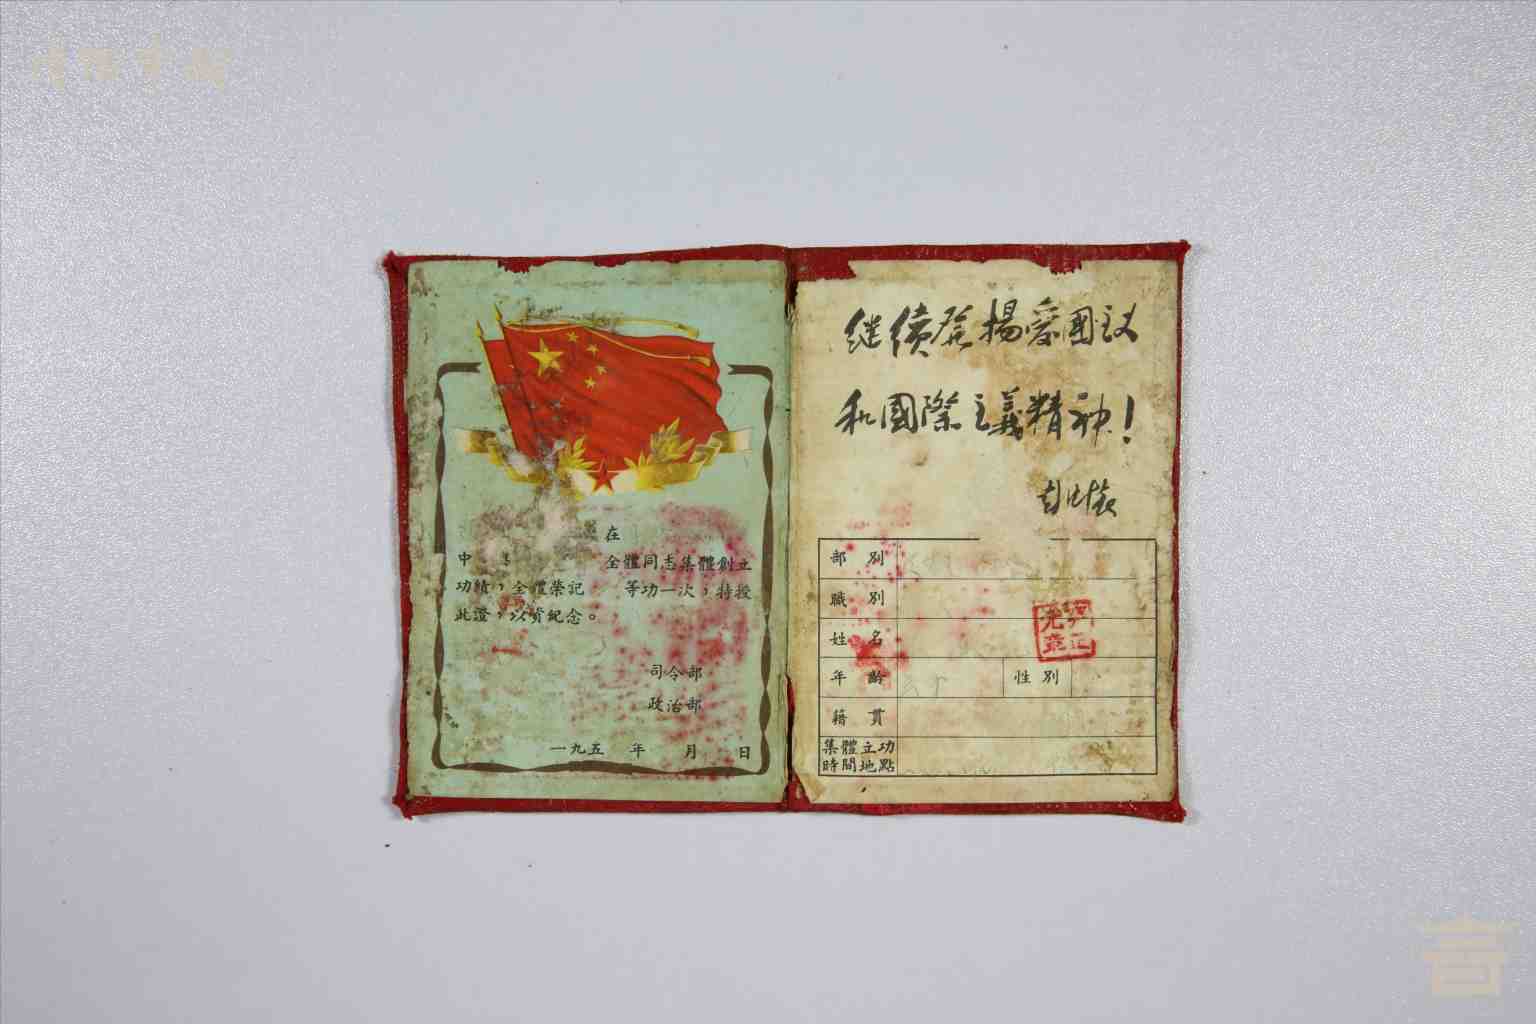 在
中
全體同志集體創立
功績，全體榮記 等功一次，特授
此證，以資紀念。
司令部
政治部
一九五 年 月 日
继續發揚爱國主义
和國際主義精神！
彭德懷
部別
職別
姓名
年齡 性別
籍貫
集體立功
時間地點